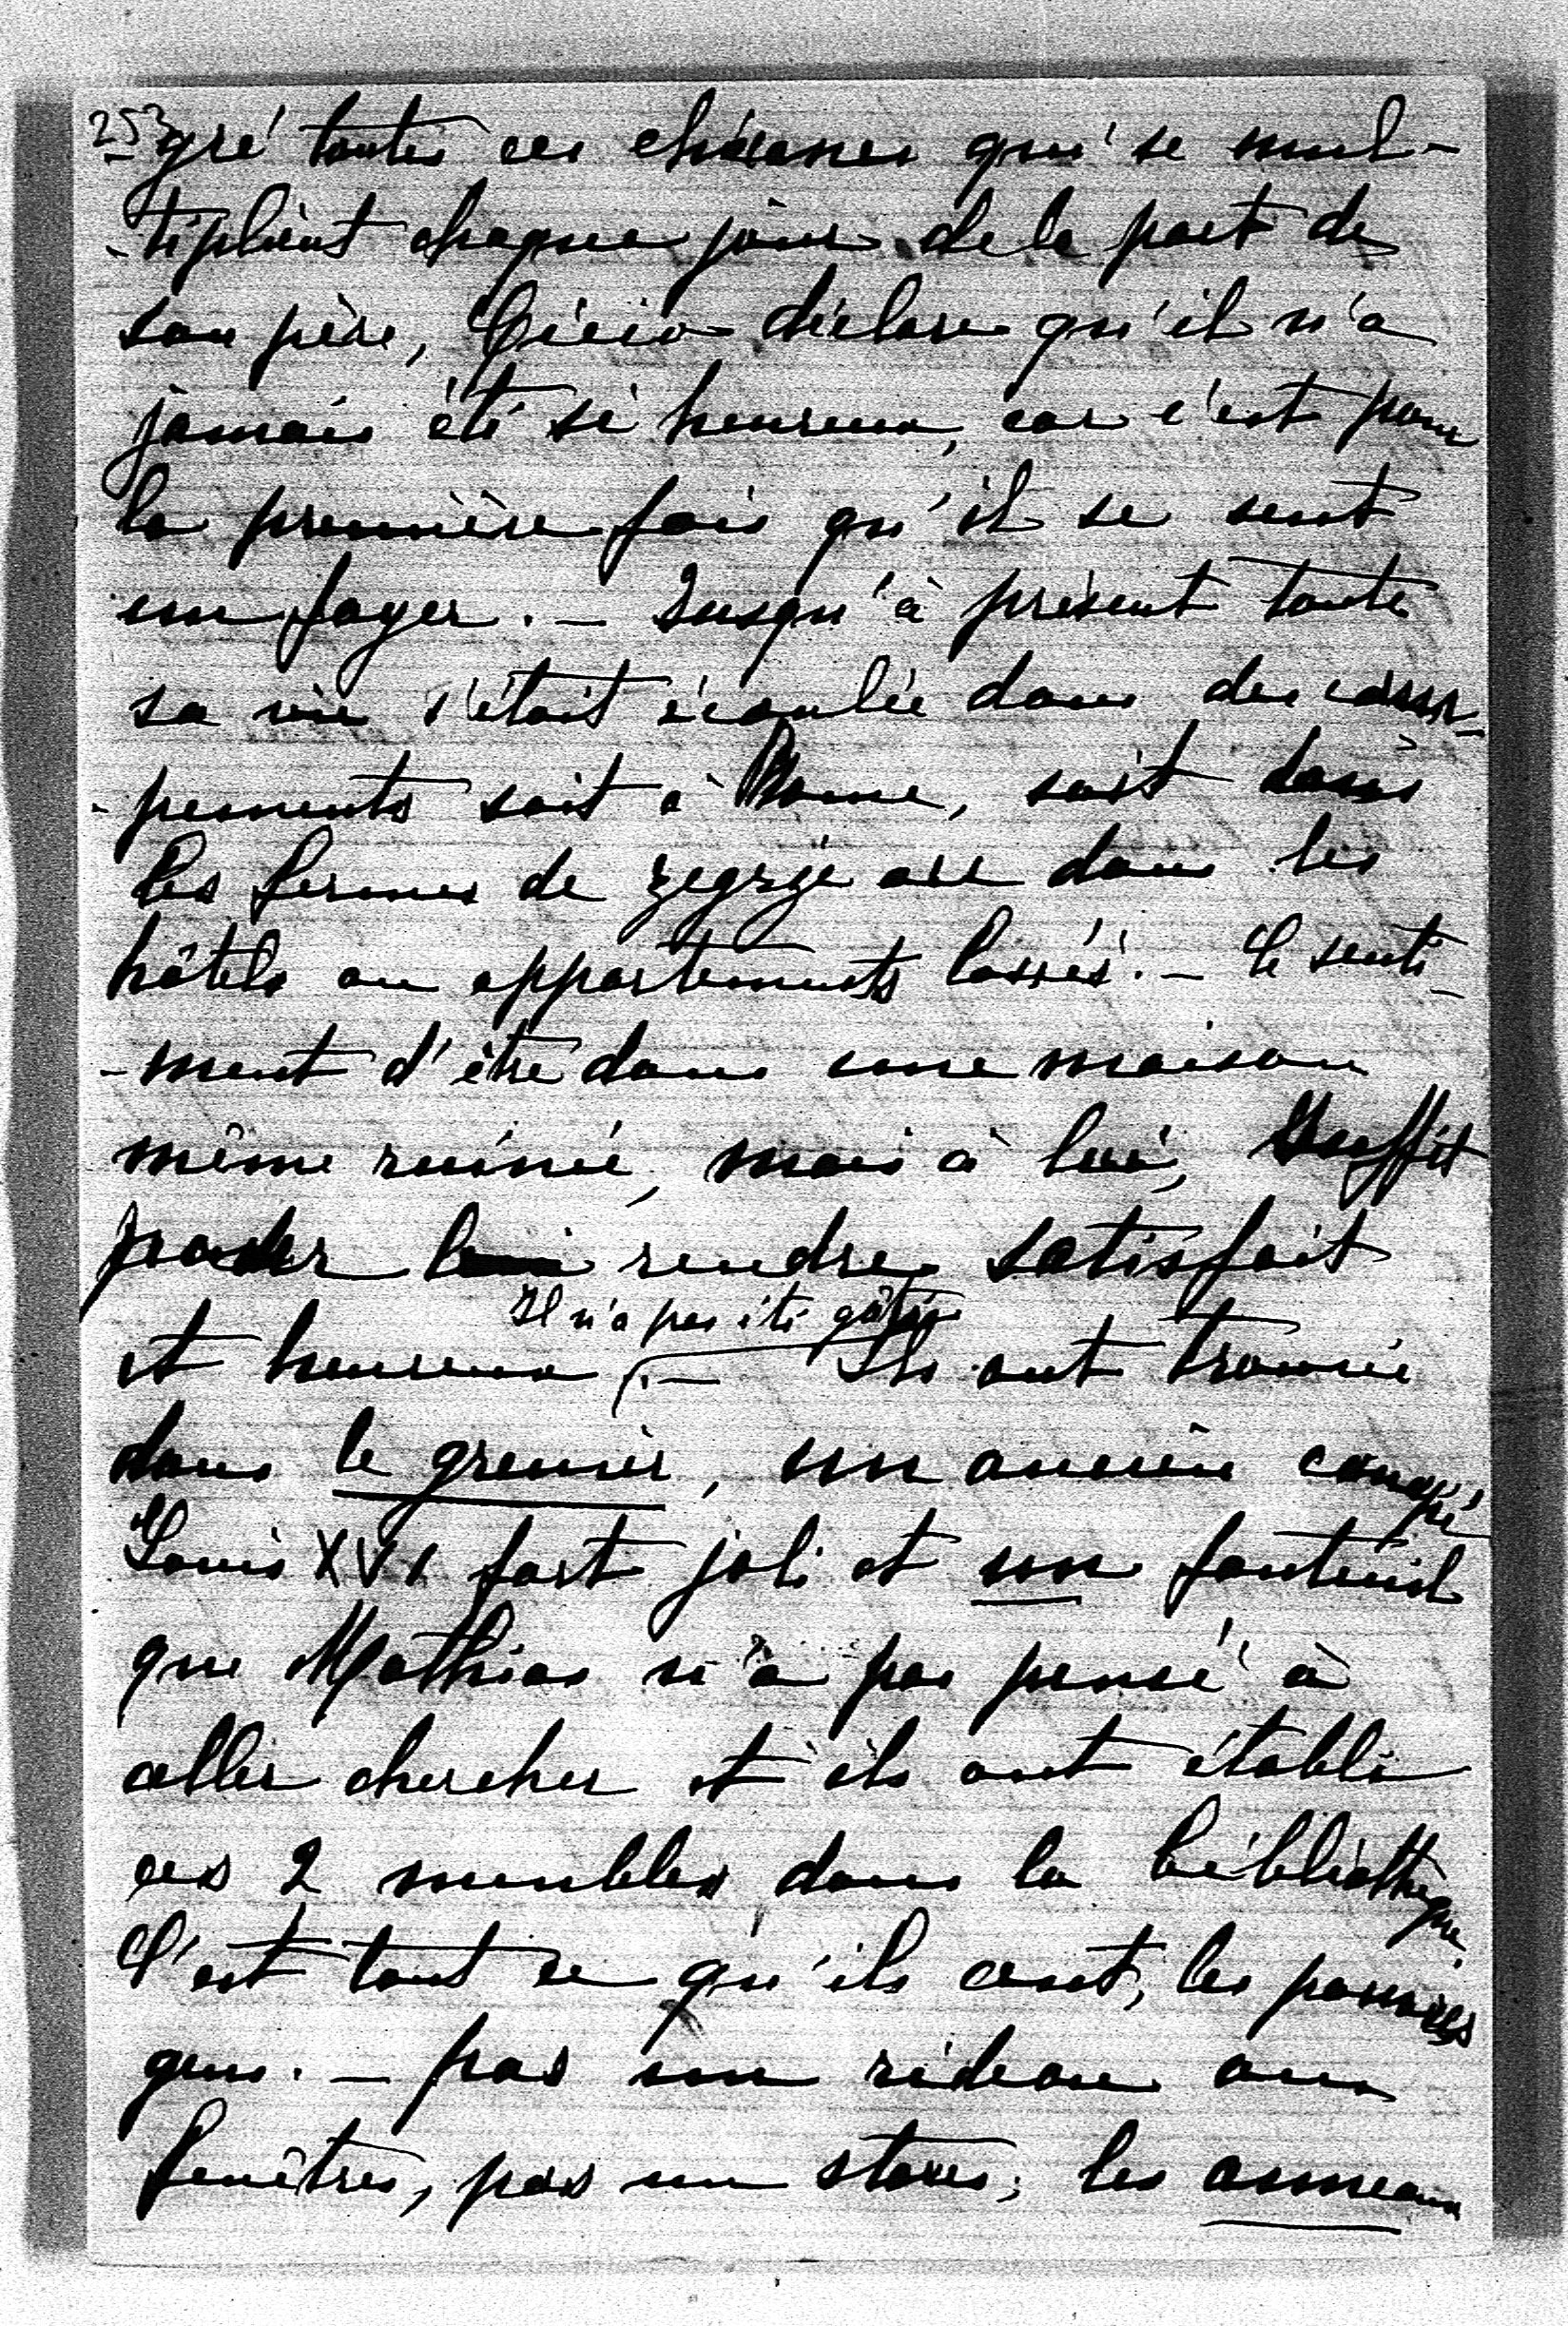 253
gré toutes ces chicanes qui se mul-
-tiplient chaque jour de la part de
son père, déclare qu'il n'a
jamais été si heureux, car c'est pour
la première fois qu'il se sent
un foyer. — Jusqu'à présent toute
sa vie s'était écoulée dans des cam-
-pements soit à Rome, soit dans
les fermes de Zegrze ou dans les
hôtels ou appartements loués. — Le senti-
-ment d'être dans une maison
même ruinée, mais à lui, suffit
pour le rendre satisfait
Il n'a pas été gâté
et heureux. — Ils ont trouvé
dans le grenier, un ancien canapé
Louis XVI fort joli et un fauteuil
que Mathias n'a pas pensé à
aller chercher et ils ont établi
ces 2 meubles dans la bibliothèque
C'est tout ce qu'ils ont, les pauvres
gens. — pas un rideau aux
fenêtres, pas un stores; les anneaux